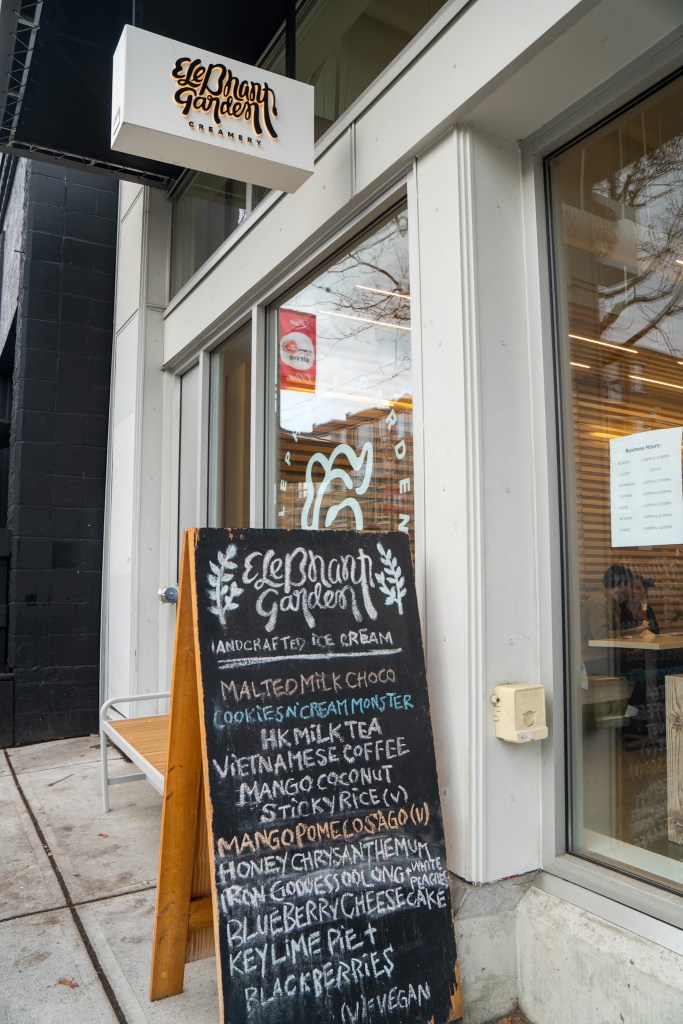 Elephant
Garden
CREAMERY
GARDEN
Business Hours:
Elephant
Garden
HANDCRAFTED ICE CREAM
MALTED MILK CHOCO
COOKIES N' CREAM MONSTER
HK MILK TEA
VIETNAMESE COFFEE
MANGO COCONUT
STICKY RICE (V)
MANGO POMELO SAGO (V)
HONEY CHRYSANTHEMUM
IRON GODDESS OOLONG + WHITE PEACHES
BLUEBERRY CHEESECAKE
KEY LIME PIE +
BLACKBERRIES
(V) = VEGAN